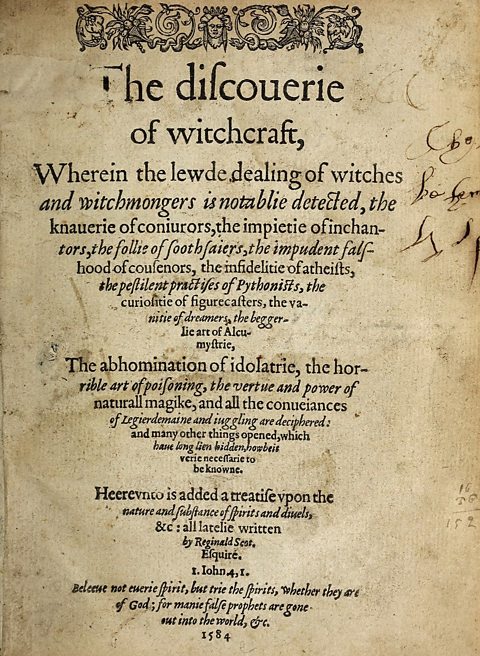 The diſcouerie
of witchcraft,
Wherein the lewde dealing of witches
and witchmongers is notablie detected, the
knauerie of coniurors, the impietie of inchan-
tors, the follie of ſoothſaiers, the impudent falſ-
hood of couſenors, the infidelitie of atheiſts,
the peſtilent practiſes of Pythoniſts, the
curioſitie of figurecaſters, the va-
nitie of dreamers, the begger-
lie art of Alcu-
myſtrie,
The abhomination of idolatrie, the hor-
rible art of poiſoning, the vertue and power of
naturall magike, and all the conueiances
of Legierdemaine and iuggling are deciphered:
and many other things opened, which
haue long lien hidden, howbeit
verie neceſſarie to
be knowne.
Heerevnto is added a treatiſe vpon the
nature and ſubſtance of ſpirits and diuels,
&c: all latelie written
by Reginald Scot
Eſquire.
1. Iohn. 4, 1.
Beleeue not euerie ſpirit, but trie the ſpirits, whether they are
of God; for manie falſe prophets are gone
out into the world, &c.
1584